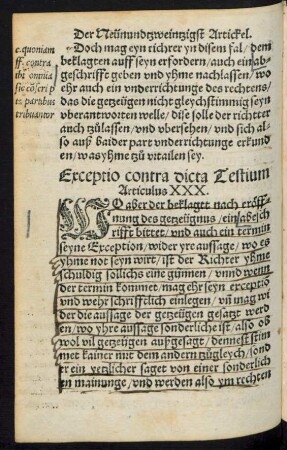 Der Neünundtzweinzigst Artickel.
c. quoniam
ff. contra
ibi omnia
sic cōscri p
ta. partibus
tribuantor
Doch mag eyn richter yn disem fal / dem
beklagten auff seyn erfordern / auch ein ab-
geschrifft geben vnd yhme nachlassen / wo
ehr auch ein vnderrichtunge des rechtens /
das die getzeügen nicht gleychstimmig seyn
vberantworten welle / dise solle der richtter
auch zůlassen / vnd vbersehen / vnd sich al-
so auß baider part vnderrichtunge erkund
en / was yhme zů vrtailen sey.
Exceptio contra dicta Testium
Articulus XXX.
WO aber der beklagtt nach eröff-
nung des getzeügnus / ein abesch
rifft bittet / vnd auch ein termin
seyne Exception / wider yre aussage / wo es
yhme not seyn wirt / ist der Richter yhme
schuldig sollichs eine günnen / vnnd wenn
der termin kommet / mag ehr seyn exceptio
vnd wehr schrifftlich einlegen / vn̄ mag wi
der die aussage der getzeügen gesatzt werd
en / wo yhre aussage sonderliche ist / also ob
wol vil getzeügen auß gesagt / dennest stim
met kainer mit dem andern zůgleych / sond
er ein yetzlicher saget von einer sonderlich
en mainunge / vnd werden also ym rechten